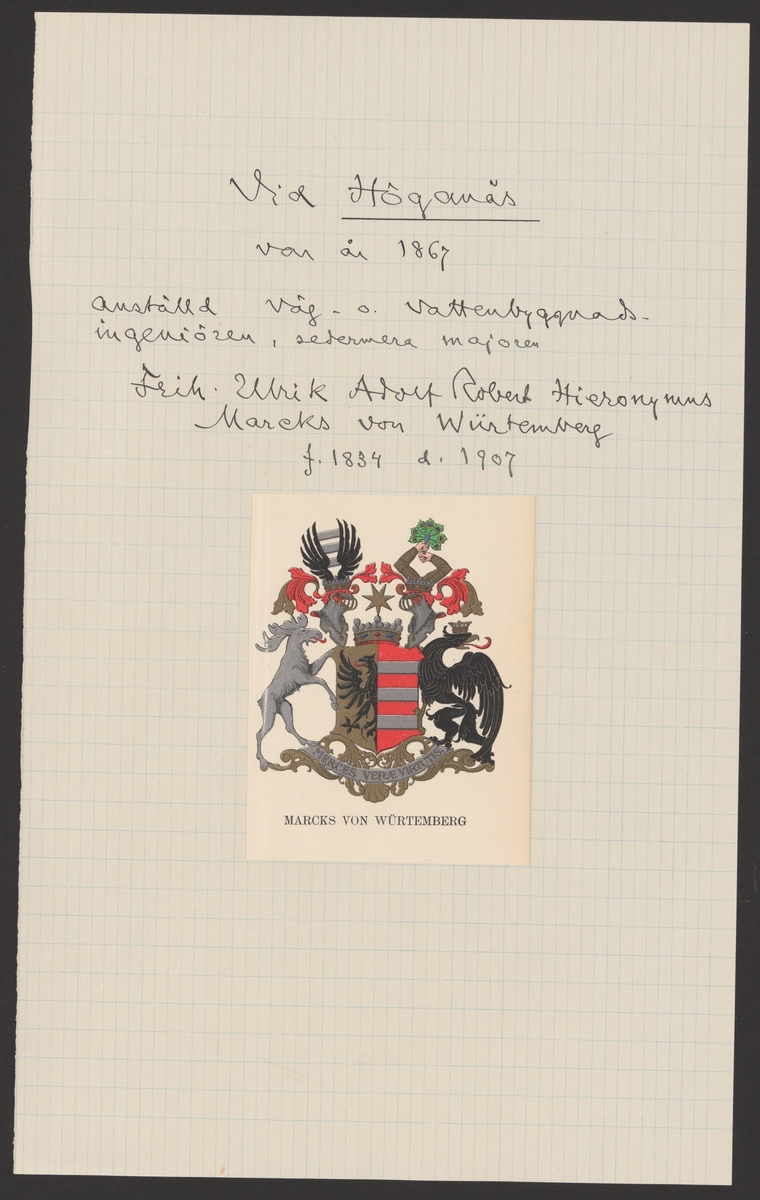 Vid Höganäs
var år 1867
anställd väg- o. vattenbyggnads-
ingeniören, sedermera majoren
Frih. Ulrik Adolf Robert Hieronymus
Marcks von Würtemberg
f. 1834 d. 1907
MERCES VERÆ VIRTUTIS
MARCKS VON WÜRTEMBERG